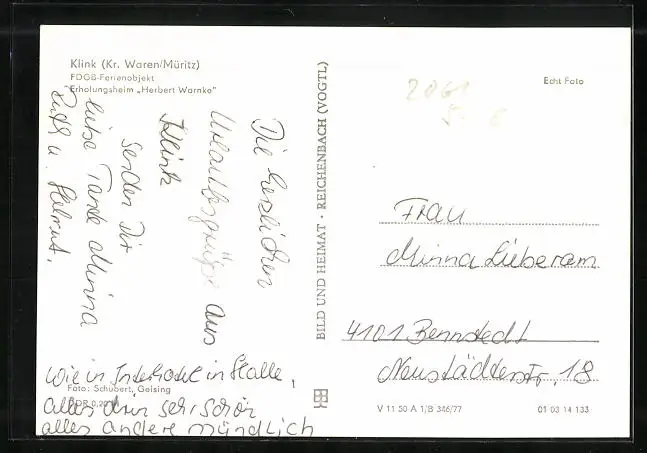 Klink (Kr. Waren/Müritz)
FDGB-Ferienobjekt
Erholungsheim „Herbert Warnke"
Die herzlichen
Urlaubsgrüße aus
Klink
senden Dir
liebe Tante Minna
Ruth u. Helmut.
wie in Interhotel in Halle,
alles drin sehr schön
alles andere mündlich
Foto: Schubert, Geising
DDR 0,20 M
BILD UND HEIMAT · REICHENBACH (VOGTL)
2061
Echt Foto
Frau
Minna Lieberam
4101 Bennstedt
Neustädterstr. 18
V 11 50 A 1/B 346/77
01 03 14 133